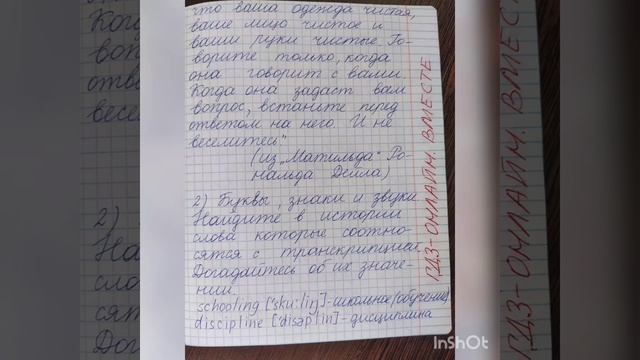 что ваша одежда чистая,
ваше лицо чистое и
ваши руки чистые. Го-
ворите только, когда
она говорит с вами.
Когда она задаст вам
вопрос, встаньте перед
ответом на него. И не
веселитесь"
(из „Матильда" Ро-
нальда Делла)
2) Буквы, знаки и звуки
Найдите в истории
слова которые соотно-
сятся с транскрипцией
Догадайтесь об их значе-
нии.
schooling ['sku:liŋ]-школьное (обучение)
discipline ['disəplin]-дисциплина
ГДЗ-ОНЛАЙН. ВМЕСТЕ
InShOt